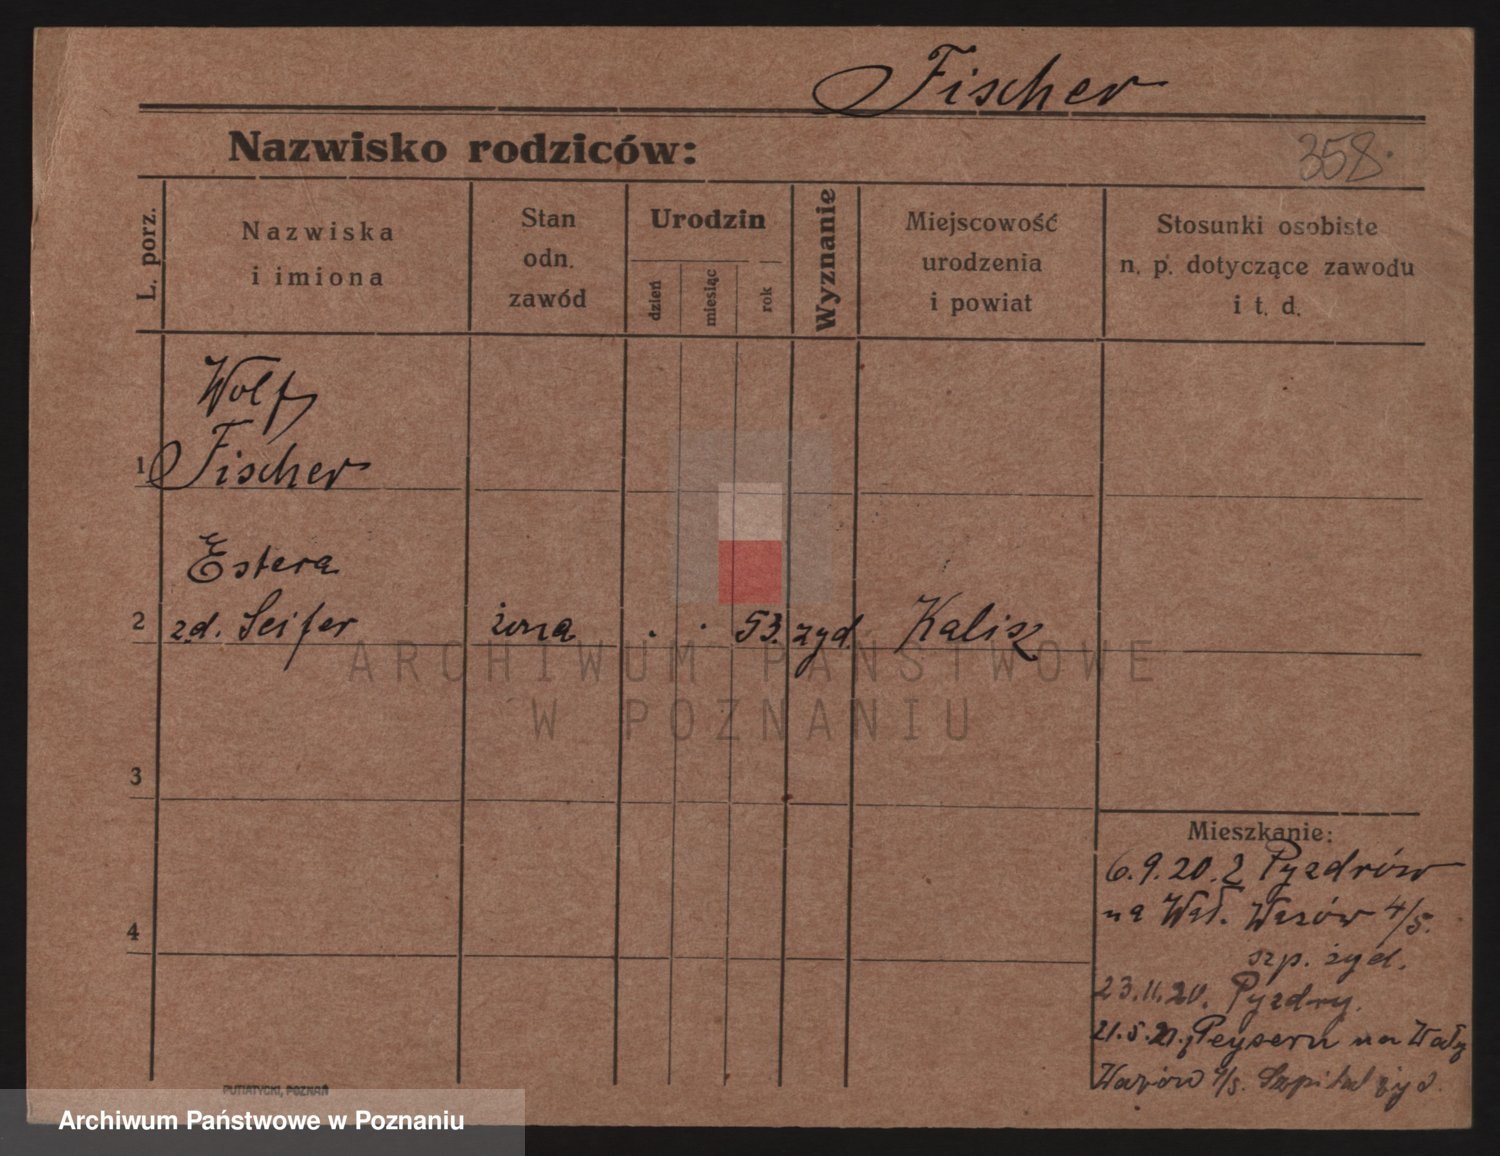 Fischer
Nazwisko rodziców:
358.
L. porz.
Nazwiska
i imiona
Stan
odn.
zawód
Urodzin
dzień
miesiąc
rok
Wyznanie
Miejscowość
urodzenia
i powiat
Stosunki osobiste
n. p. dotyczące zawodu
i t. d.
Wolf
1 Fischer
Estera
2 zd. Seifer żona . . 53. żyd. Kalisz
ARCHIWUM PAŃSTWOWE
W POZNANIU
3
4
Mieszkanie:
6.9.20. z Pyzdrów
na Wał. Wazów 4/5.
szp. żyd.
23.11.20. Pyzdry.
21.5.21. Peysern na Wały
Wazów 4/5. Szpital żyd.
PUTIATYCKI, POZNAŃ
Archiwum Państwowe w Poznaniu